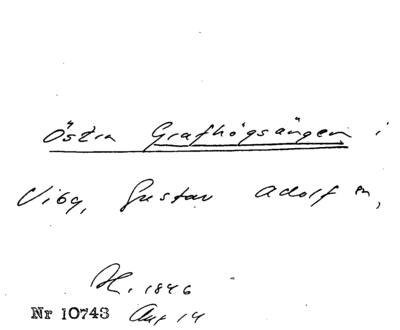 Östra Grafhögsängen i
Viby, Gustav Adolf sn,
H. 1846
Nr 10743 Aug 14